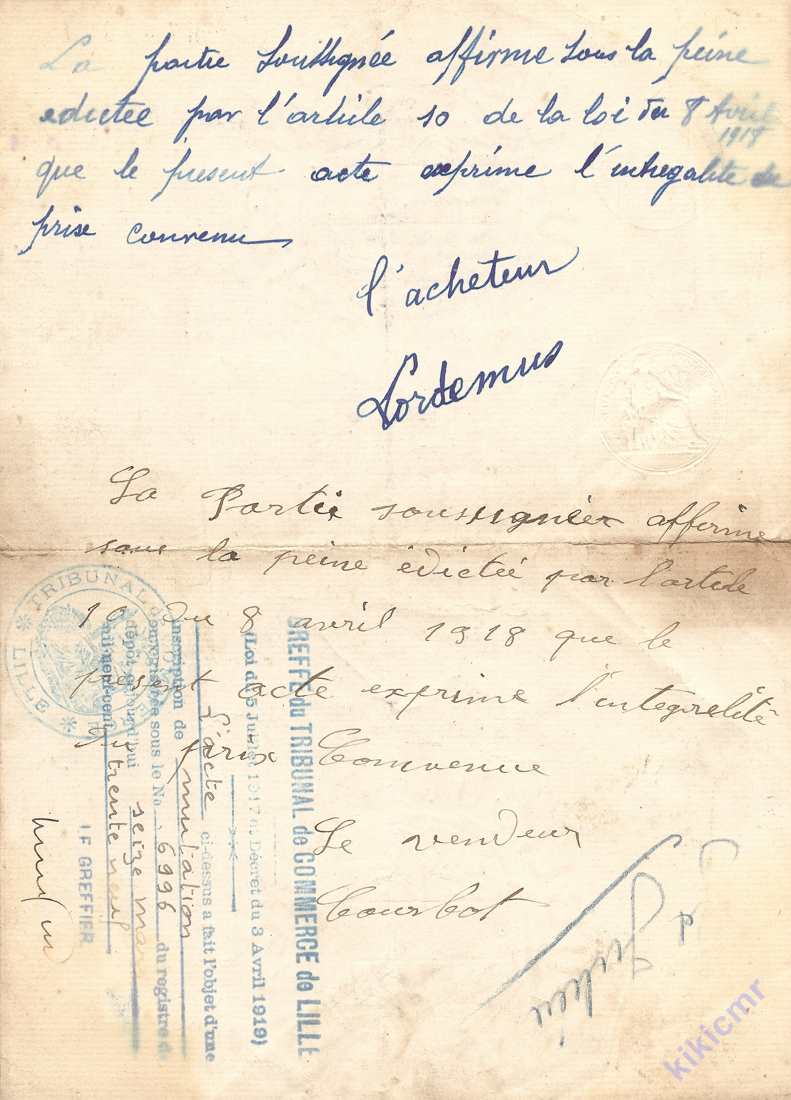 La partie soussignée affirme sous la peine
edictée par l'article 10 de la loi du 8 Avril
1918
que le présent acte exprime l'integalité du
prise convenu
l'acheteur
Lordemus
La Partie soussignéer affirme
sous la peine édictée par l'article
10 du 8 avril 1918 que le
présent acte exprime l'integralité
du prix Convenue
Le vendeur
Courbot
TRIBUNAL
LILLE
GREFFE du TRIBUNAL de COMMERCE de LILLE
(Loi du 5 Juillet 1917 & Décret du 3 Avril 1919)
L'acte ci-dessus a fait l'objet d'une
inscription de mutation
enregistrée sous le No 6996 du registre de
dépôt aujourd'hui seize mai
mil neuf cent trente neuf
LE GREFFIER
kikicmr